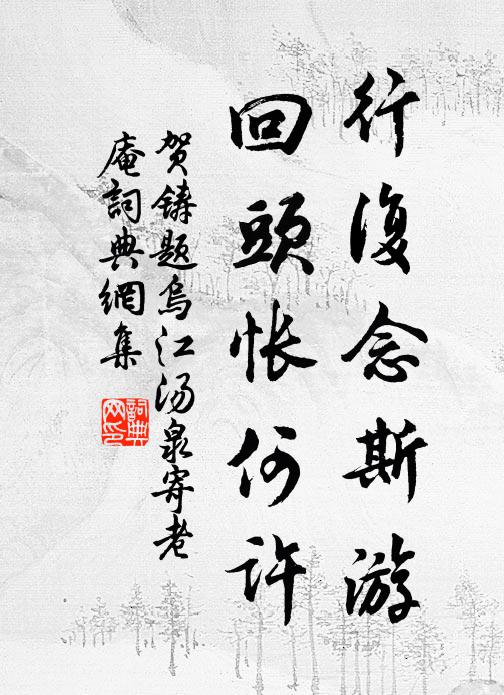 行復念斯游
回頭悵何许
贺鑄题烏江汤泉寄老
庵詞典網集
詞典
网印